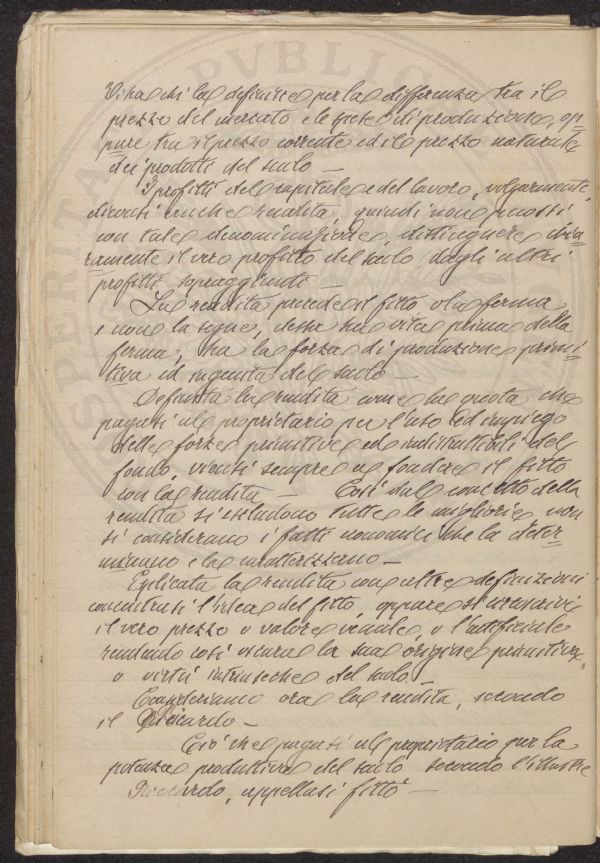 Vi ha chi la definisce per la differenza tra il
prezzo del mercato e le spese di produzione, op-
pure tra il prezzo corrente ed il prezzo naturale
dei prodotti del suolo —
I profitti del capitale e del lavoro, volgarmente,
diconsi anche rendita, quindi non puossi
con tale denominazione, distinguere chia-
ramente il vero profitto del suolo, dagli altri
profitti sopraggiunti —
La rendita precede il fitto o la ferma
e non la segue, dessa ha vita prima della
ferma, ha la forza di produzione primi-
tiva ed ingenita del suolo —
Definita la rendita come la quota che
pagasi al proprietario per l'uso ed impiego
delle forze primitive ed indistruttibili del
fondo, viensi sempre a fondere il fitto
con la rendita — Così dal concetto della
rendita si escludono tutte le migliorie, non
si considerano i fatti economici che la deter-
minano e la caratterizzano —
Esplicata la rendita con altre definizioni
concentrasi l'idea del fitto, oppure si
il vero prezzo o valore venale, o l'artificiale
rendendo così oscura la sua origine primitiva
o virtù intrinseche del suolo —
Consideriamo ora la rendita, secondo
il Ricardo —
Ciò che pagasi al proprietario per la
potenza produttiva del suolo secondo l'illustre
Ricardo, appellasi fitto —